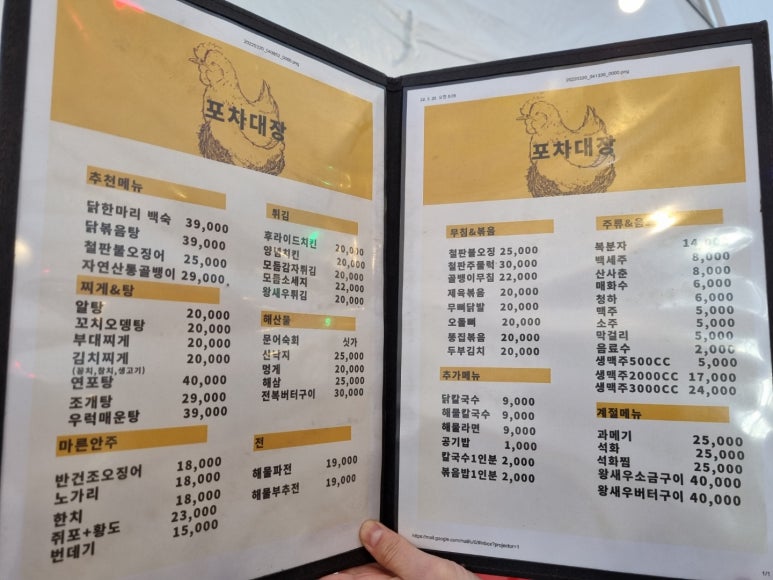 20220320_040852_0000.png
포차대장
추천메뉴
닭한마리 백숙 39,000
닭볶음탕 39,000
철판불오징어 25,000
자연산통골뱅이 29,000
찌게&탕
알탕 20,000
꼬치오뎅탕 20,000
부대찌게 20,000
김치찌게 20,000
(꽁치,참치,생고기)
연포탕 40,000
조개탕 29,000
우럭매운탕 39,000
마른안주
반건조오징어 18,000
노가리 18,000
한치 18,000
쥐포+황도 23,000
번데기 15,000
튀김
후라이드치킨 20,000
양념치킨 20,000
모듬감자튀김 20,000
모듬소세지 22,000
왕새우튀김 20,000
해산물
문어숙회 싯가
산낙지 25,000
멍게 20,000
해삼 25,000
전복버터구이 30,000
전
해물파전 19,000
해물부추전 19,000
20220320_041336_0000.png
포차대장
무침&볶음
철판불오징 25,000
철판주물럭 30,000
골뱅이무침 22,000
제육볶음 20,000
무뼈닭발 20,000
오돌뼈 20,000
똥집볶음 20,000
두부김치 20,000
추가메뉴
닭칼국수 9,000
해물칼국수 9,000
해물라면 9,000
공기밥 1,000
칼국수1인분 2,000
볶음밥1인분 2,000
주류&음
복분자 14,
백세주 8,000
산사춘 8,000
매화수 6,000
청하 6,000
맥주 5,000
소주 5,000
막걸리 5,000
음료수 2,000
생맥주500CC 5,000
생맥주2000CC 17,000
생맥주3000CC 24,000
계절메뉴
과메기 25,000
석화 25,000
석화찜 25,000
왕새우소금구이 40,000
왕새우버터구이 40,000
1/1